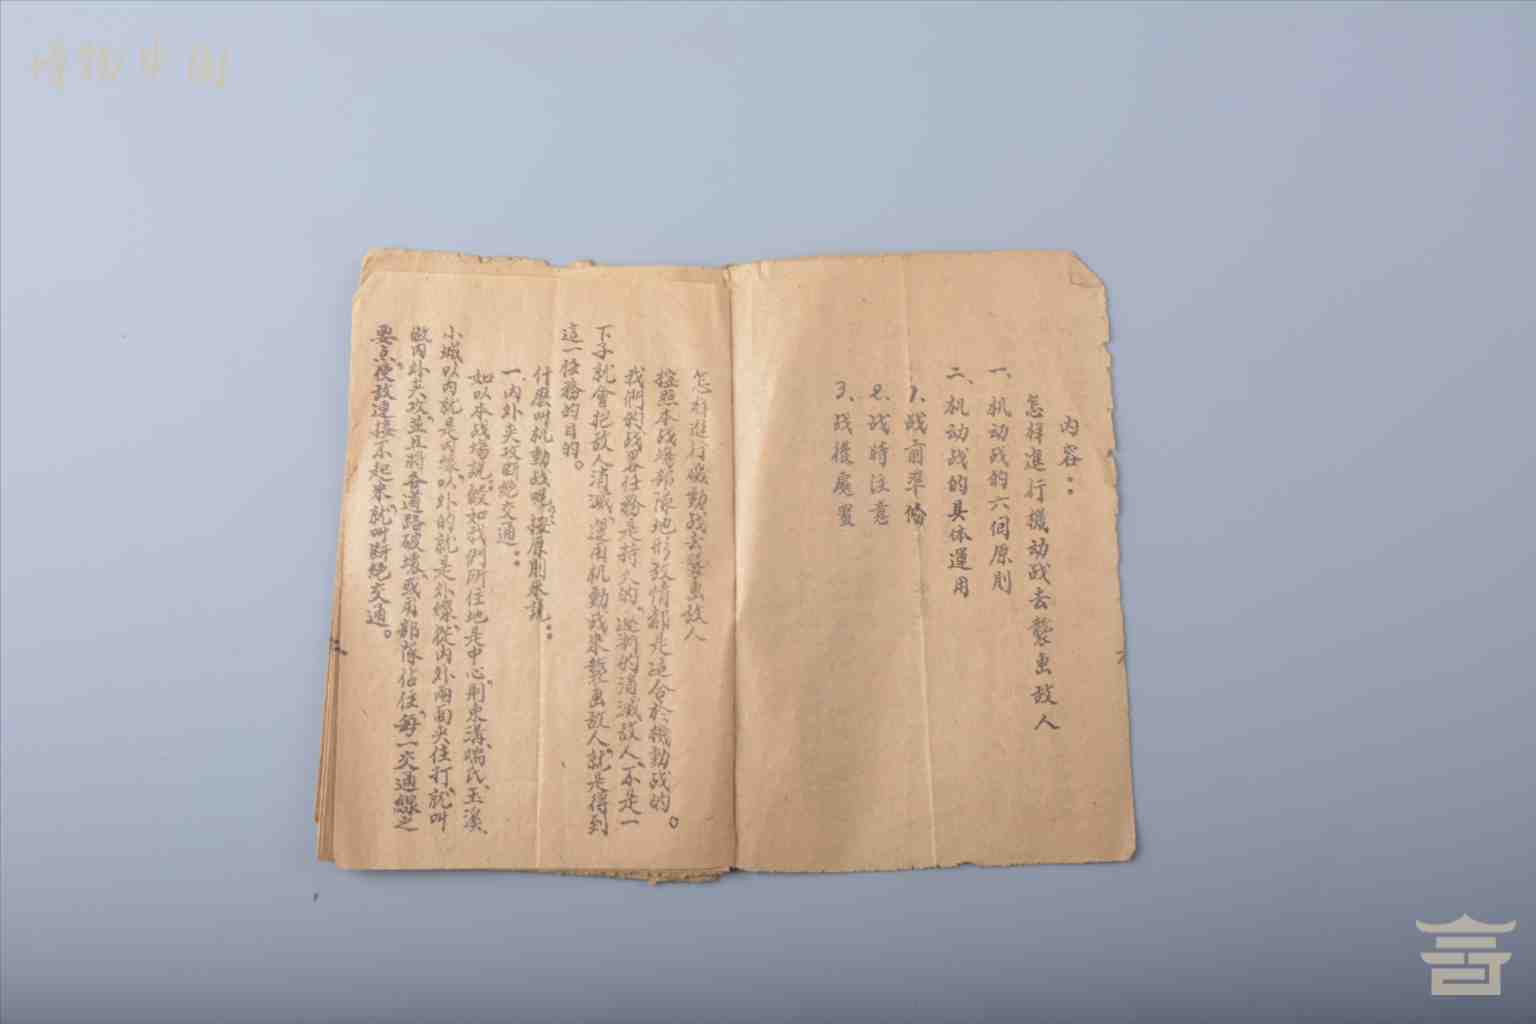 博物中国
内容：
怎样進行機动战去襲击敌人
一、机动战的六個原則
二、机动战的具体運用
1、战前準備
2、战時注意
3、战後處置
怎样進行機動战去襲击敌人
按照本战場部隊地形敌情都是适合於機動战的。
我們的战畧任務是持久的、逐漸的消滅敌人、不是一
下子就會把敌人消滅、運用机動战来襲击敌人、就是得到
這一任務的目的。
什麽叫机動战呢？按原則来說：
一、内外夹攻断绝交通：
如以本战場說、假如我們所住地是中心、則東溝、端氏、玉溪、
小城以内就是内線、以外的就是外線、從内外兩面夹住打、就叫
做内外夹攻、並且將各道路破壞、或用部隊佔住、每一交通線之
要点、使敌連接不起来、就叫断绝交通。